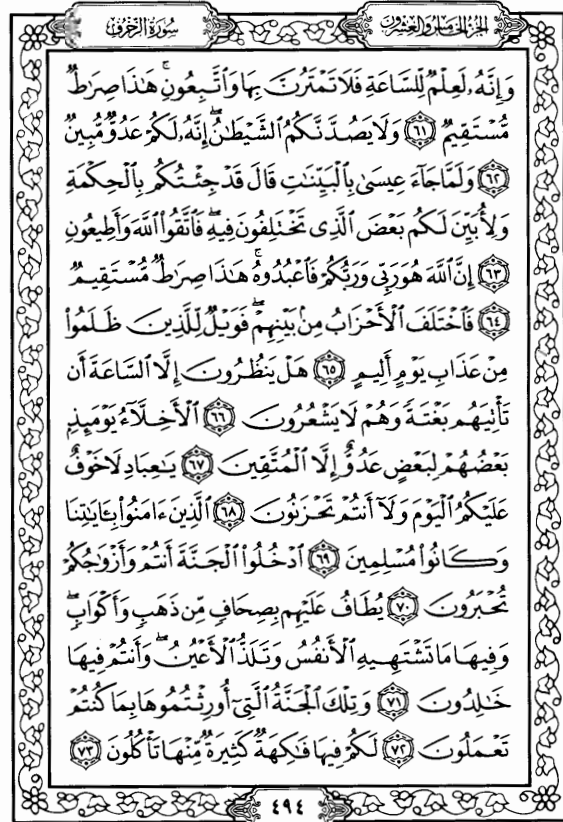 الجزء الخامس والعشرون سورة الزخرف
وَإِنَّهُۥ لَعِلْمٌ لِّلسَّاعَةِ فَلَا تَمْتَرُنَّ بِهَا وَٱتَّبِعُونِ ۚ هَٰذَا صِرَٰطٌ
مُّسْتَقِيمٌ ٦١ وَلَا يَصُدَّنَّكُمُ ٱلشَّيْطَٰنُ ۖ إِنَّهُۥ لَكُمْ عَدُوٌّ مُّبِينٌ
٦٢ وَلَمَّا جَآءَ عِيسَىٰ بِٱلْبَيِّنَٰتِ قَالَ قَدْ جِئْتُكُم بِٱلْحِكْمَةِ
وَلِأُبَيِّنَ لَكُم بَعْضَ ٱلَّذِى تَخْتَلِفُونَ فِيهِ ۖ فَٱتَّقُوا۟ ٱللَّهَ وَأَطِيعُونِ
٦٣ إِنَّ ٱللَّهَ هُوَ رَبِّى وَرَبُّكُمْ فَٱعْبُدُوهُ ۚ هَٰذَا صِرَٰطٌ مُّسْتَقِيمٌ
٦٤ فَٱخْتَلَفَ ٱلْأَحْزَابُ مِنۢ بَيْنِهِمْ ۖ فَوَيْلٌ لِّلَّذِينَ ظَلَمُوا۟
مِنْ عَذَابِ يَوْمٍ أَلِيمٍ ٦٥ هَلْ يَنظُرُونَ إِلَّا ٱلسَّاعَةَ أَن
تَأْتِيَهُم بَغْتَةً وَهُمْ لَا يَشْعُرُونَ ٦٦ ٱلْأَخِلَّآءُ يَوْمَئِذٍۭ
بَعْضُهُمْ لِبَعْضٍ عَدُوٌّ إِلَّا ٱلْمُتَّقِينَ ٦٧ يَٰعِبَادِ لَا خَوْفٌ
عَلَيْكُمُ ٱلْيَوْمَ وَلَآ أَنتُمْ تَحْزَنُونَ ٦٨ ٱلَّذِينَ ءَامَنُوا۟ بِـَٔايَٰتِنَا
وَكَانُوا۟ مُسْلِمِينَ ٦٩ ٱدْخُلُوا۟ ٱلْجَنَّةَ أَنتُمْ وَأَزْوَٰجُكُمْ
تُحْبَرُونَ ٧٠ يُطَافُ عَلَيْهِم بِصِحَافٍ مِّن ذَهَبٍ وَأَكْوَابٍ ۖ
وَفِيهَا مَا تَشْتَهِيهِ ٱلْأَنفُسُ وَتَلَذُّ ٱلْأَعْيُنُ ۖ وَأَنتُمْ فِيهَا
خَٰلِدُونَ ٧١ وَتِلْكَ ٱلْجَنَّةُ ٱلَّتِىٓ أُورِثْتُمُوهَا بِمَا كُنتُمْ
تَعْمَلُونَ ٧٢ لَكُمْ فِيهَا فَٰكِهَةٌ كَثِيرَةٌ مِّنْهَا تَأْكُلُونَ ٧٣
٤٩٤